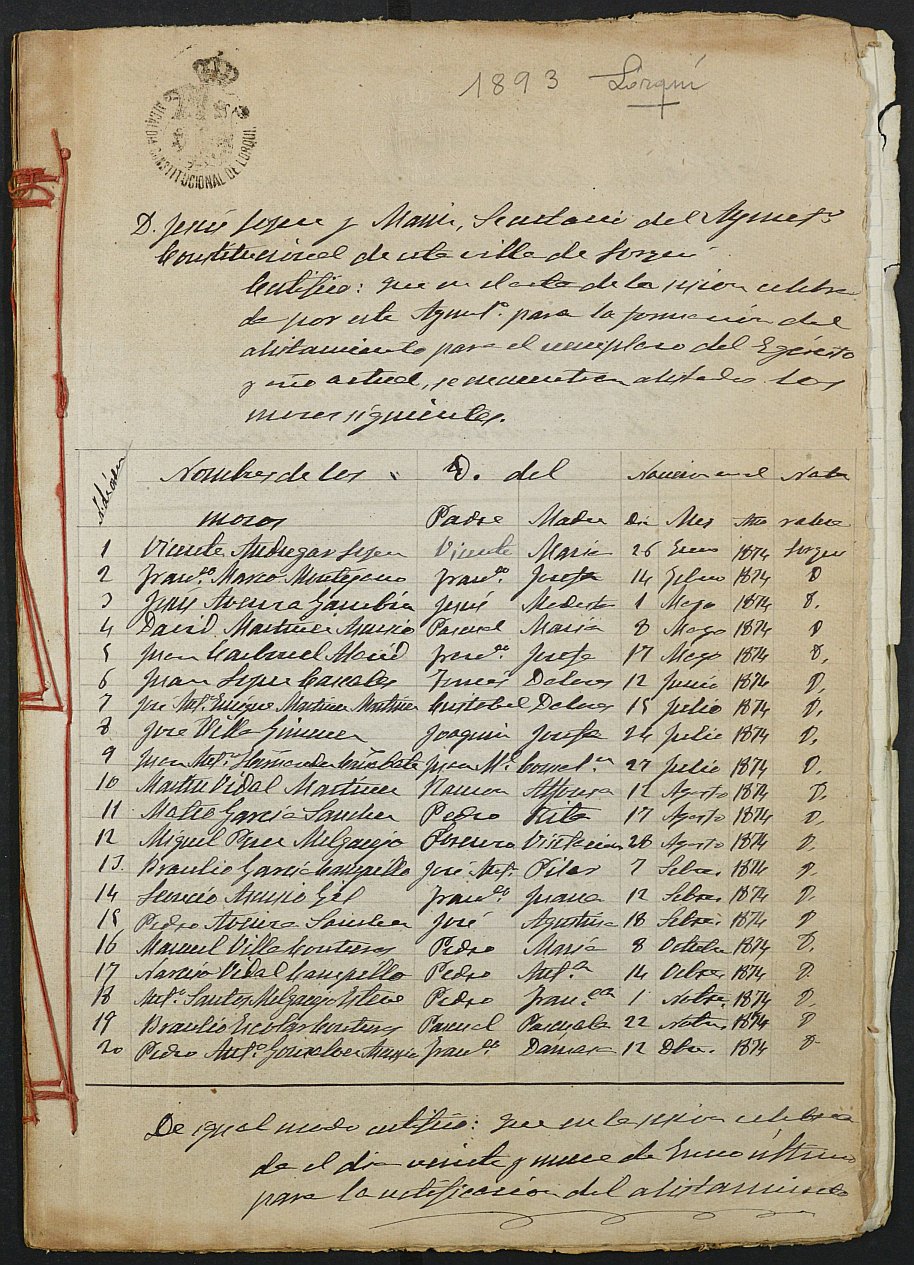 1893 Lorquí
ALCALDIA CONSTITUCIONAL DE LORQUI
D. Jesús Lopez y Marin, Secretario del Ayunt.º
Constitucional de esta villa de Lorquí
Certifico: que en el acta de la sesion celebra
da por este Ayunt.º para la formacion del
alistamiento para el reemplazo del Egército
y año actual, se encuentran alistados los
mozos siguientes.
Nombres de los D. del Nacieron en el Natu
mozos Padre Madre Dia Mes Año raleza
1 Vicente Lopez Vicente Maria 26 Enero 1874 Lorquí
2 Fran.co Marco Montegano Fran.co Josefa 14 Febro 1874 D
3 Jesús Avenza Jesús Modesta 1 Mayo 1874 D.
4 David Martinez Asensio Pascual Maria 8 Mayo 1874 D
5 Juan Carbonel Fran.co Josefa 17 Mayo 1874 D.
6 Juan Lopez Cascales Dolores 12 Junio 1874 D.
7 José Ant.º Enrique Martinez Martinez Cristobal Dolores 15 Julio 1874 D.
8 Jose Villa Gimenez Joaquin Josefa 24 Julio 1874 D.
9 Juan Ant.º Hernandez Juan M.l 27 Julio 1874 D.
10 Martin Vidal Martinez Ramon Alfonsa 12 Agosto 1874 D.
11 Mateo Garcia Sanchez Pedro Rita 17 Agosto 1874 D.
12 Miguel Perez Melgarejo Lorenzo Visitacion 28 Agosto 1874 D.
13. Braulio Garcia Campillo José Ant.º Pilar 7 Sebre 1874 D.
14 Asensio Gil Fran.co Juana 12 Sebre 1874 D.
15 Pedro Avenza Sanchez José Agustina 18 Sebre 1874 D
16 Manuel Villa Contreras Pedro Maria 8 Octubre 1874 D.
17 Narciso Vidal Campillo Pedro Ant.ª 14 Ocbre 1874 D.
18 Ant.º Santos Melgarejo Pedro Fran.ca 1 Nobre 1874 D.
19 Braulio Escolar Contreras Pascual Pascuala 22 Nobre 1874 D
20 Pedro Ant.º Gonzalez Asensio Fran.co Dámasa 12 Dbre. 1874 D
De igual modo certifico: que en la sesion celebra
da el dia veinte y nueve de Enero último
para la rectificacion del alistamiento